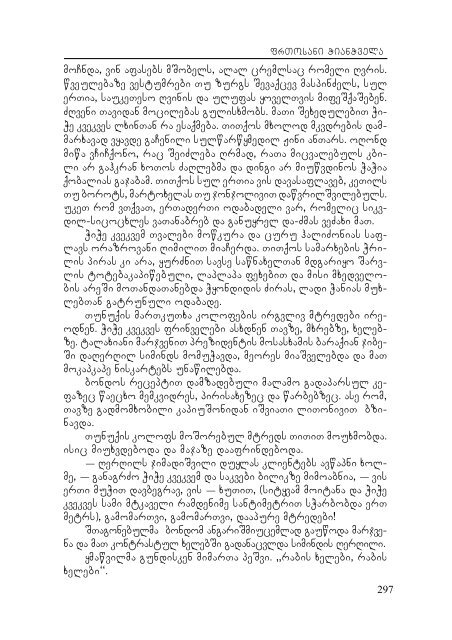 ფრთოსანი ჭიანჭველა
მოჩნდა, ვინ აფასებს მშობელს, ალალ ცრემლსაც რომელი ღვრის.
წვეულებაზე ვესტუმრები თუ ზურგს შევაქცევ მასპინძელს, სულ
ერთია, საუკეთესო ღვინის და ულუფას ყოველთვის მიფეშქაშებენ.
ძღვენი თავიდან მოცილებას გულისხმობს. მათი შეხედულებით ჭი-
ჭე კვეკვეს ლხინთან რა ესაქმება. თითქოს მხოლოდ მკვდრების დამ-
მარხავად ვყავდე გაჩენილი სულწარწყმედილ ჟინი ანთარს. ოღონდ
მიწა ვჩიჩქონო, რაც შეიძლება ღრმად, რათა მიცვალებულს კბი-
ლი არ გაჰკრან ხოთოს ძაღლებმა და დინგი არ მიუწვდინოს ჭაჭია
ქობალიას გაჯაბამ. თითქოს სულ ერთია ვის დავასაფლავებ, კეთილს
თუ ბოროტს, მარტოხელას თუ ჯონჯოლივით დაწვრილშვილებულს.
უკეთ რომ ვთქვათ, ერთადერთი ოდაბადელი ვარ, რომელიც სიკვ-
დილ-სიცოცხლეს ვათანაბრებ და განუყრელ და-ძმას ვეძახი მათ.
ჭიჭე კვეკვემ თვალები მოწკურა და ცურუ ჰალიძონიას საფ-
ლავს ორაზროვანი ღიმილით მიაჩერდა. თითქოს სამარხების ჭრი-
ლის პირას კი არა, ყურძნით სავსე საწნახელთან მდგარიყო შარვ-
ლის ტოტებაკაპიწებული, ლაპლაპა ფეხებით და მისი მხედველო-
ბის არეში მოთანდათანებდა ჭყონდიდის ძირას, ლადი ჭანიას მუხ-
ლებთან გატრუნული ოდაბადე.
თუნუქის მართკუთხა კოლოფების ირგვლივ მტრედები ირე-
ოდნენ. ჭიჭე კვეკვეს ფრინველები ასხდნენ თავზე, მხრებზე, ხელებ-
ზე. ტალახიანი მარჯვენით პრეზიდენტის მოსასხამის ბარაქიან ჯიბე-
ში დაღერღილ სიმინდს მომუჭავდა, მეორეს მიაშველებდა და მათ
მოკაპკაპე ნისკარტებს უნაწილებდა.
ბონდოს რეცეპტით დამზადებული მალამო გადაპარსულ კე-
ფაზეც წაეცხო მემკვიდრეს, პირისახეზეც და წარბებზეც. ასე რომ,
თავზე გადმომხობილი კაპიუშონიდან იშვიათი ლითონივით ბზი-
ნავდა.
თუნუქის კოლოფს მოშორებულ მტრედს თითით მოუხმობდა.
ისიც მიუხვდებოდა და მაჯაზე დააფრინდებოდა.
— ღერღილს ჯიმადიშვილი დუყლას კლიენტებს აუწაპნი ხოლ-
მე, — განაგრძო ჭიჭე კვეკვემ და საკვები ბილიკზე მიმოაბნია, — ვის
ერთი მუჭით დავბეგრავ, ვის — ხუთით, (სიტყვამ მოიტანა და ჭიჭე
კვეკვეს სამი მტკაველი რამდენიმე სანტიმეტრით სჭარბობდა ერთ
მეტრს), გამომართვი, გამომართვი, დააპურე მტრედები!
შთაგონებულმა ბონდომ ანგარიშმიუცემლად გაუწოდა მარჯვე-
ნა და მათ კონტრასტულ ხელებში გადანაცვლდა სიმინდის ღერღილი.
ყმაწვილმა გუნდისკენ მიმართა პეშვი. „რაბის ხელები, რაბის
ხელები“.
297